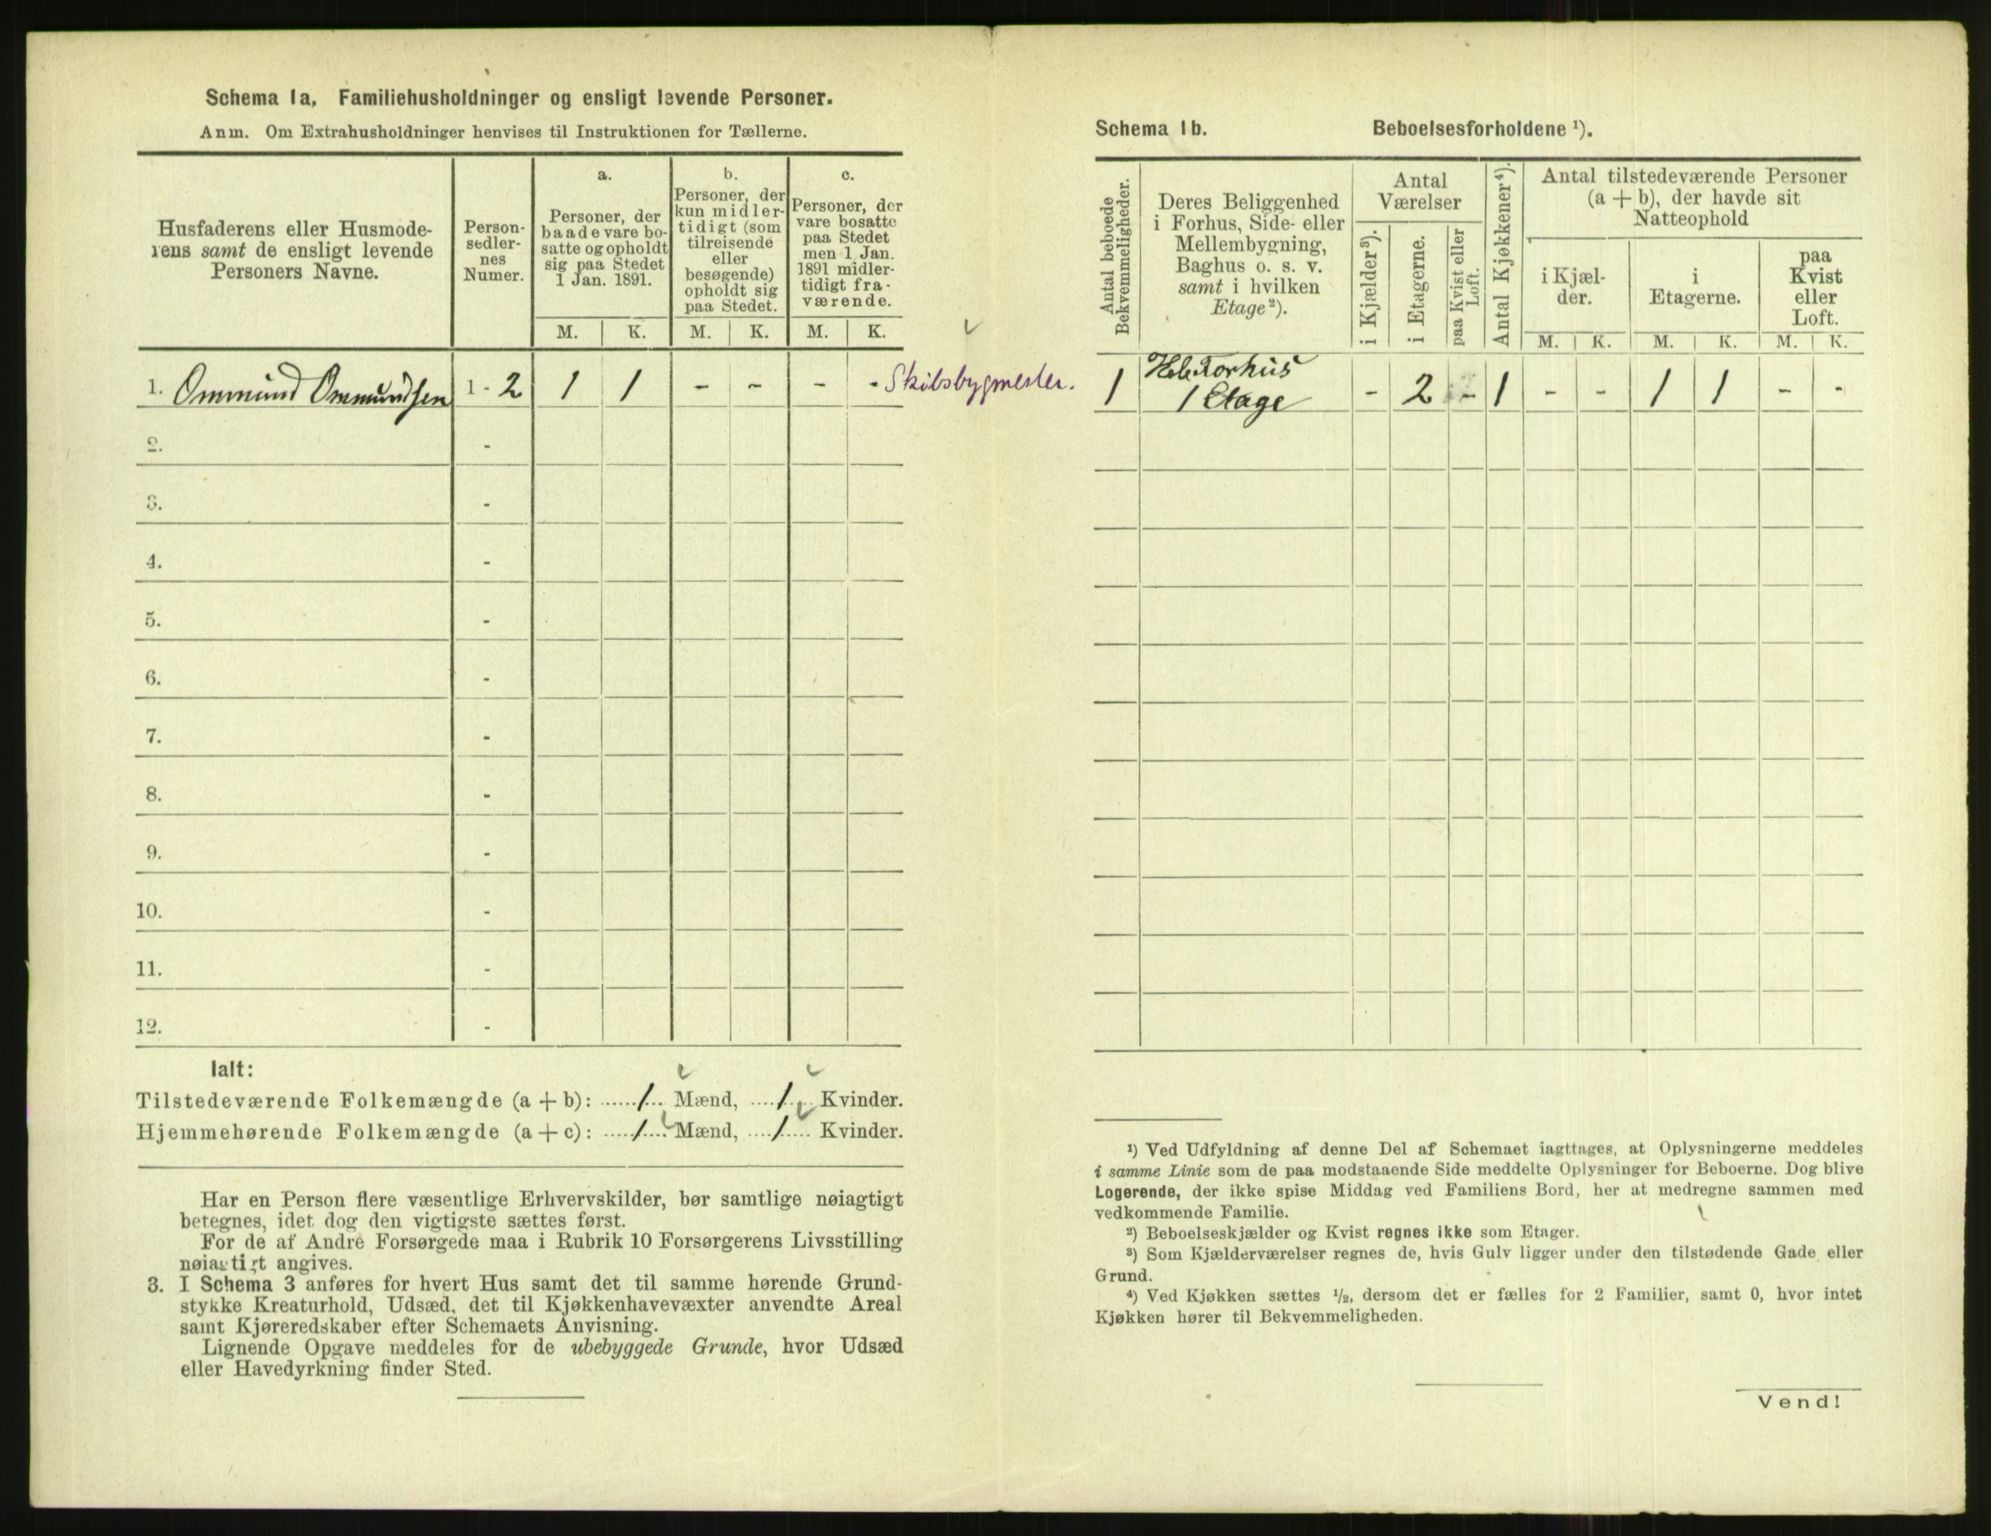 Schema 1a, Familiehusholdninger og ensligt levende Personer.
Anm. Om Extrahusholdninger henvises til Instruktionen for Tællerne.
Husfaderens eller Husmoderens
samt de ensligt levende
Personers Navne.
Person-
sedler-
nes
Numer.
a.
Personer, der
baade vare bo-
satte og opholdt
sig paa Stedet
1 Jan. 1891.
b.
Personer, der
kun midler-
tidigt (som
tilreisende
eller
besøgende)
opholdt sig
paa Stedet.
c.
Personer, der
vare bosatte
paa Stedet
men 1 Jan.
1891 midler-
tidigt fra-
værende.
M. K. M. K. M. K.
1. Ommund Ommundsen 1 - 2 1 1 - - - - Skibsbygmester.
2. -
3. -
4. -
5. -
6. -
7. -
8. -
9. -
10. -
11. -
12. -
Ialt:
Tilstedeværende Folkemængde (a + b): ......1... Mænd, ....1.... Kvinder.
Hjemmehørende Folkemængde (a + c): .....1.... Mænd, ....1..... Kvinder.
Har en Person flere væsentlige Erhvervskilder, bør samtlige nøiagtigt
betegnes, idet dog den vigtigste sættes først.
For de af Andre Forsørgede maa i Rubrik 10 Forsørgerens Livsstilling
nøiagtigt angives.
3. I Schema 3 anføres for hvert Hus samt det til samme hørende Grund-
stykke Kreaturhold, Udsæd, det til Kjøkkenhavevæxter anvendte Areal
samt Kjøreredskaber efter Schemaets Anvisning.
Lignende Opgave meddeles for de ubebyggede Grunde, hvor Udsæd
eller Havedyrkning finder Sted.
Schema 1b. Beboelsesforholdene ¹).
Antal beboede
Bekvemmeligheder.
Deres Beliggenhed
i Forhus, Side- eller
Mellembygning,
Baghus o. s. v.
samt i hvilken
Etage²).
Antal
Værelser
i Kjælder³).
i Etagerne.
paa Kvist eller
Loft.
Antal Kjøkkener⁴).
Antal tilstedeværende Personer
(a + b), der havde sit
Natteophold
i Kjæl-
der.
i
Etagerne.
paa
Kvist
eller
Loft.
M. K. M. K. M. K.
1 Forhus
1 Etage - 2 - 1 - - 1 1 - -
¹) Ved Udfyldning af denne Del af Schemaet iagttages, at Oplysningerne meddeles
i samme Linie som de paa modstaaende Side meddelte Oplysninger for Beboerne. Dog blive
Logerende, der ikke spise Middag ved Familiens Bord, her at medregne sammen med
vedkommende Familie.
²) Beboelseskjælder og Kvist regnes ikke som Etager.
³) Som Kjælderværelser regnes de, hvis Gulv ligger under den tilstødende Gade eller
Grund.
⁴) Ved Kjøkken sættes ½, dersom det er fælles for 2 Familier, samt 0, hvor intet
Kjøkken hører til Bekvemmeligheden.
Vend!